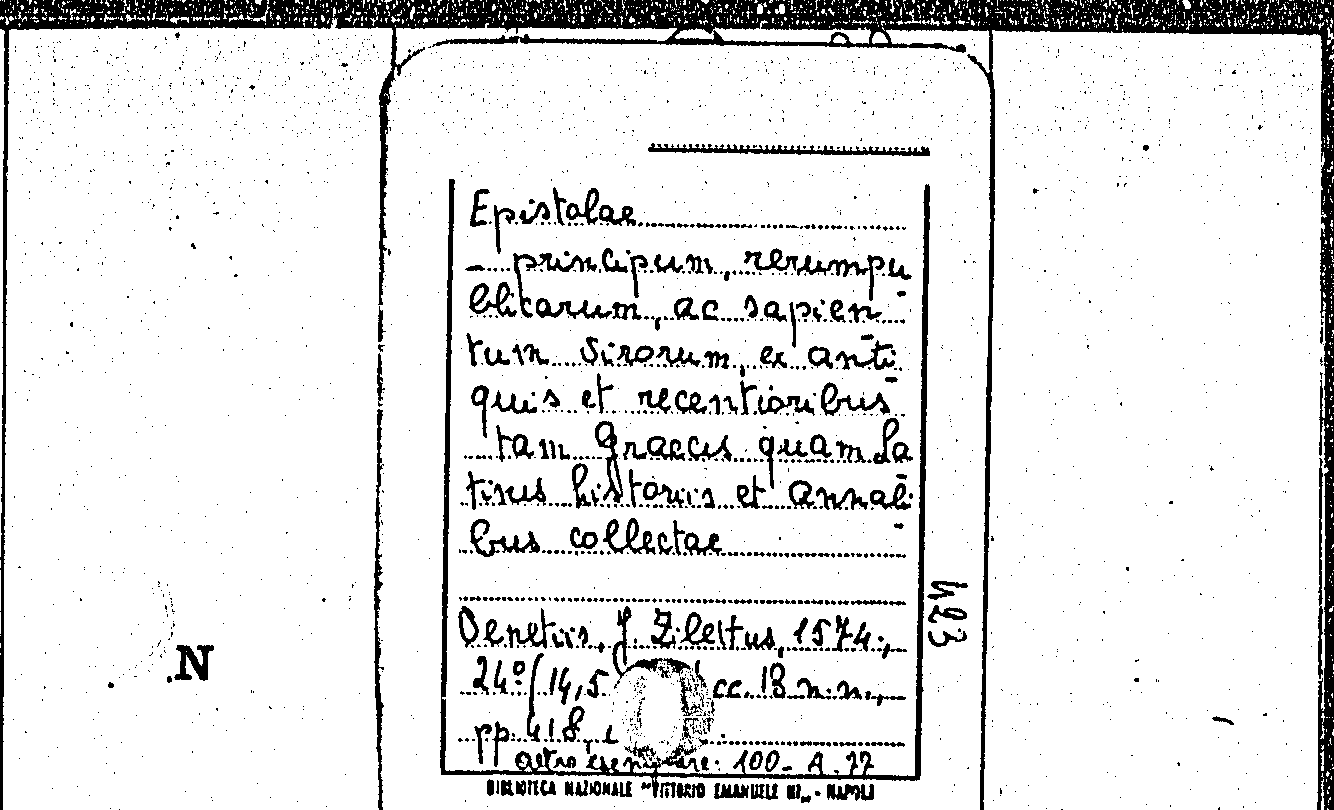 Epistolae
- principum, rerumpu-
blicarum, ac sapien-
tum virorum, ex anti-
quis et recentioribus
tam Graecis quam La-
tinis historiis et annali-
bus collectae
Venetiis, J. Zilettus, 1574.,
24º (14,5 cc. 18 n.n.,
pp. 418,
altro esemplare: 100- A. 77
BIBLIOTECA NAZIONALE "VITTORIO EMANUELE III" - NAPOLI
423
N